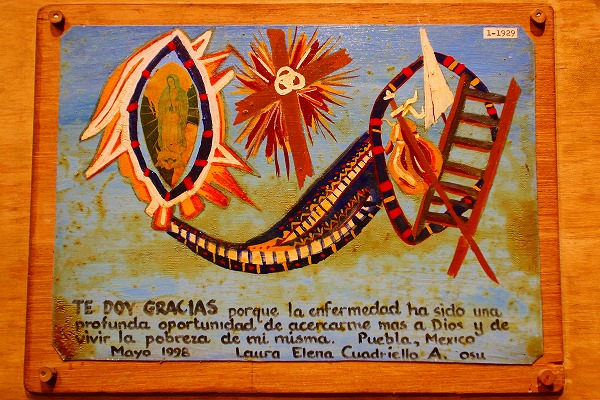 1-1929
TE DOY GRACIAS porque la enfermedad ha sido una
profunda oportunidad de acercarme mas a Dios y de
vivir la pobreza de mi misma. Puebla, Mexico
Mayo 1998 Laura Elena Cuadriello A. osu